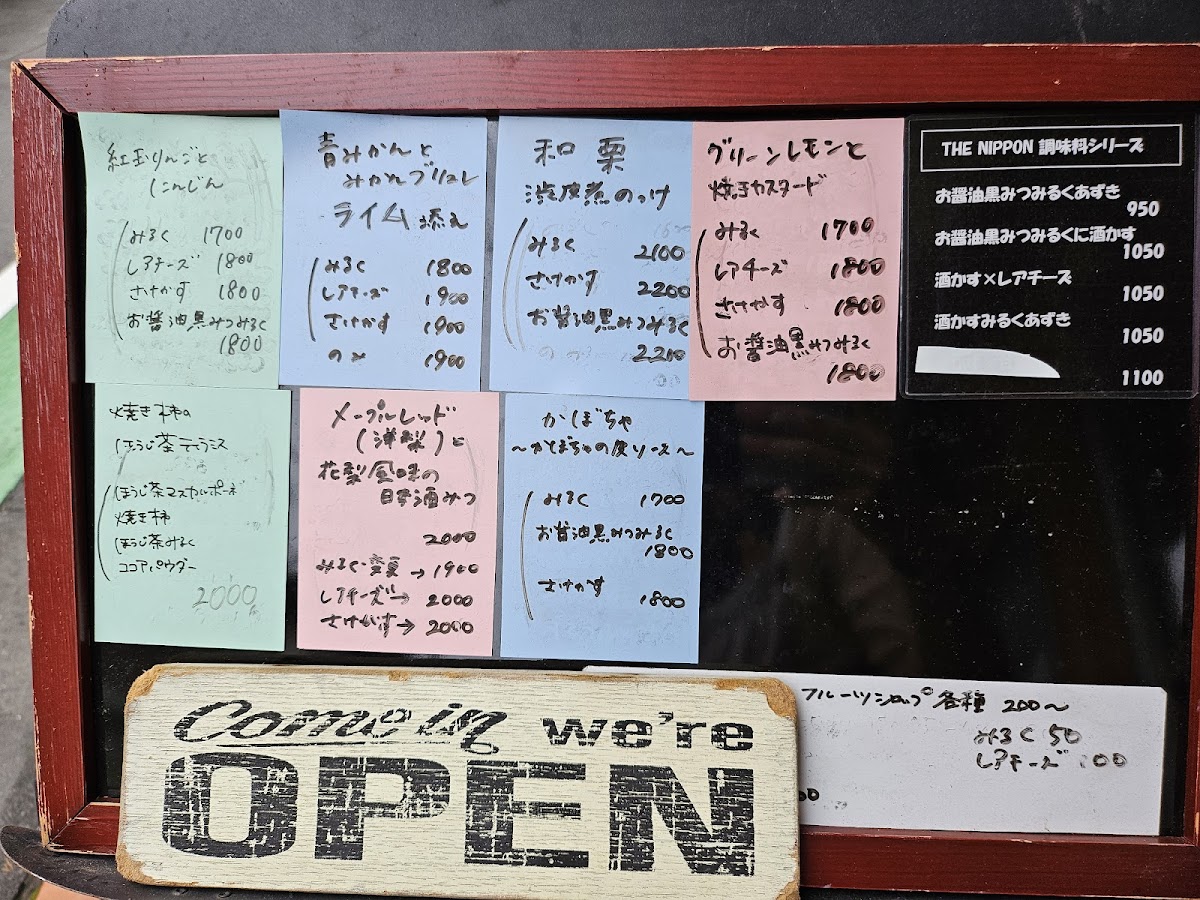 紅玉りんごと
にんじん
みるく 1700
レアチーズ 1800
さけかす 1800
お醤油黒みつみるく
1800
青みかんと
みかんブリュレ
ライム添え
みるく 1800
レアチーズ 1900
さけかす 1900
のみ 1900
和栗
渋皮煮のっけ
みるく 2100
さけかす 2200
お醤油黒みつみるく
2200
グリーンレモンと
焼きカスタード
みるく 1700
レアチーズ 1800
さけかす 1800
お醤油黒みつみるく
1800
THE NIPPON 調味料シリーズ
お醤油黒みつみるくあずき
950
お醤油黒みつみるくに酒かす
1050
酒かす×レアチーズ
1050
酒かすみるくあずき
1050
1100
焼き柿の
ほうじ茶ティラミス
ほうじ茶マスカルポーネ
焼き柿
ほうじ茶みるく
ココアパウダー
2000
メープルレッド
(洋梨)と
花梨風味の
日本酒みつ
2000
みるく変更→1900
レアチーズ→ 2000
さけかす→ 2000
かぼちゃ
〜かぼちゃの皮ソース〜
みるく 1700
お醤油黒みつみるく
1800
さけかす 1800
フルーツシロップ各種 200〜
みるく 50
レアチーズ 100
Come in we're
OPEN